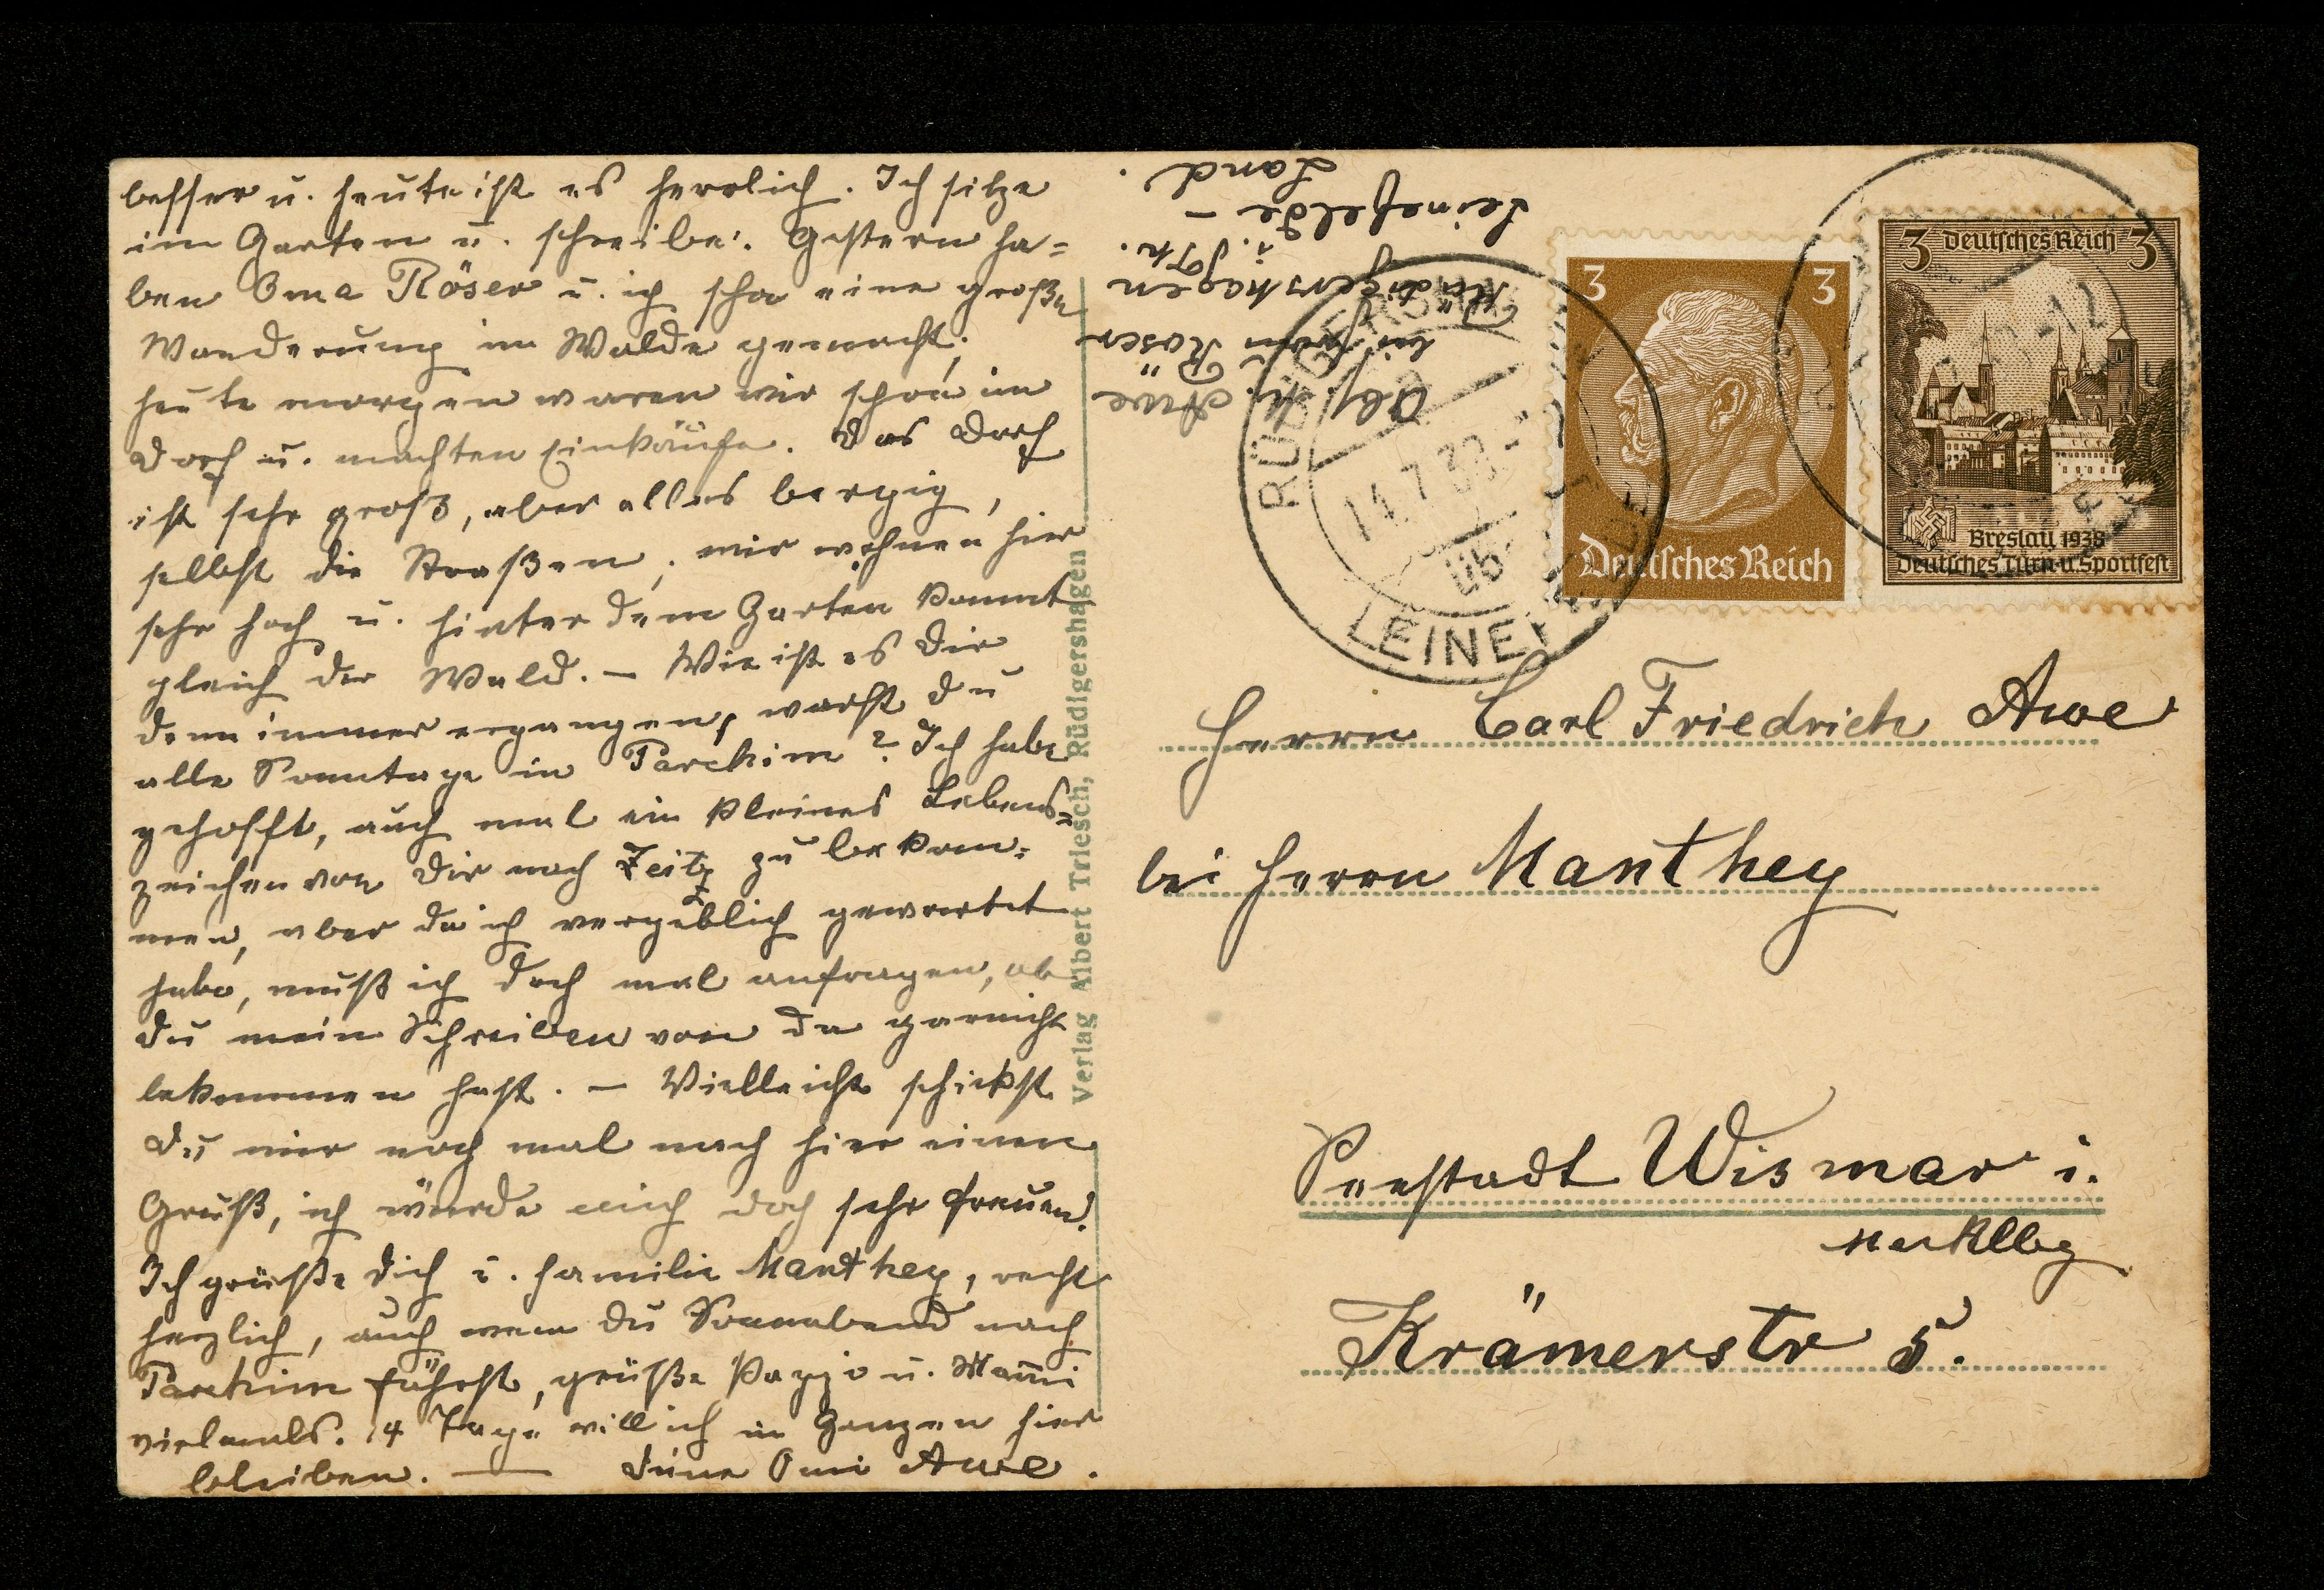 besser u. heute ist es herrlich. Ich sitze
im Garten u. schreibe. Gestern ha=
ben Oma Röser u. ich schon eine große
Wanderung im Walde gemacht,
heute morgen waren wir schon im
Dorf u. machten Einkäufe. Das Dorf
ist sehr groß, aber alles bergig,
selbst die Straßen, wir wohnen hier
sehr hoch u. hinter dem Garten kommt
gleich der Wald. – Wie ist es Dir
denn immer ergangen, warst Du
alle Sonntage in Parchim? Ich habe
gehofft, auch mal ein kleines Lebens=
zeichen von Dir nach Zeitz zu bekom=
men, aber da ich vergeblich gewartet
habe, muß ich doch mal anfragen, ob
Du mein Schreiben von da garnicht
bekommen hast. – Vielleicht schickst
Du mir noch mal nach hier einen
Gruß, ich würde mich doch sehr freuen.
Ich grüße Dich u. Familie Manthey, recht
herzlich, auch wenn Du Sonnabend nach
Parchim fährst, grüße Pappi u. Mammi
vielmals. 14 Tage will ich im Ganzen hier
bleiben. — Deine Omi Awe.
Verlag Albert Triesch, Rüdigershagen
Abs. M. Awe
bei Frau Röser
Rüdigershagen
i. Th.
Leinefelde –
Land.
RÜDIGERSHAGEN
14.7.38
üb.
LEINEFELDE
3 3
Deutsches Reich
3 Deutsches Reich 3
Breslau 1938
Deutsches Turn- u. Sportfest
Herrn Carl Friedrich Awe
bei Herrn Manthey
Seestadt Wismar i.
Mecklbg
Krämerstr 5.